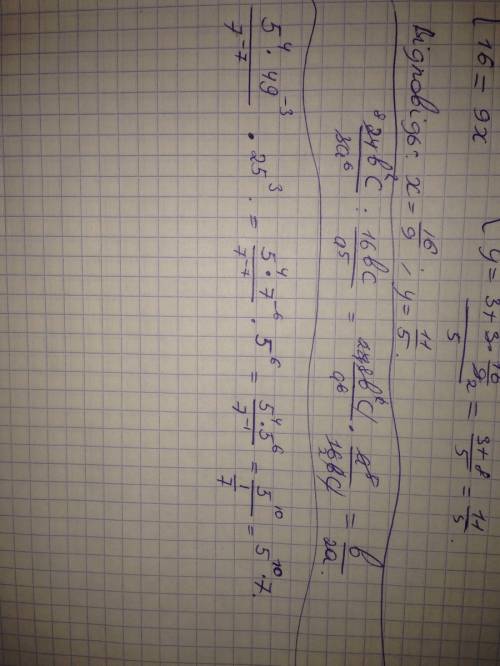 16 = 9x
y = (3 + 3 · 16/9)/5 = (3 + 8)/5 = 11/5.
Відповідь: x = 16/9; y = 11/5.
24b²c/3a⁶ : 16bc/a⁵ = 8b²c/a⁶ · a⁵/16bc = b/2a.
5⁴ · 49⁻³/7⁻⁷ · 25³ = 5⁴ · 7⁻⁶/7⁻⁷ · 5⁶ = 5⁴ · 5⁶/7⁻¹ = 5¹⁰/(1/7) = 5¹⁰ · 7.